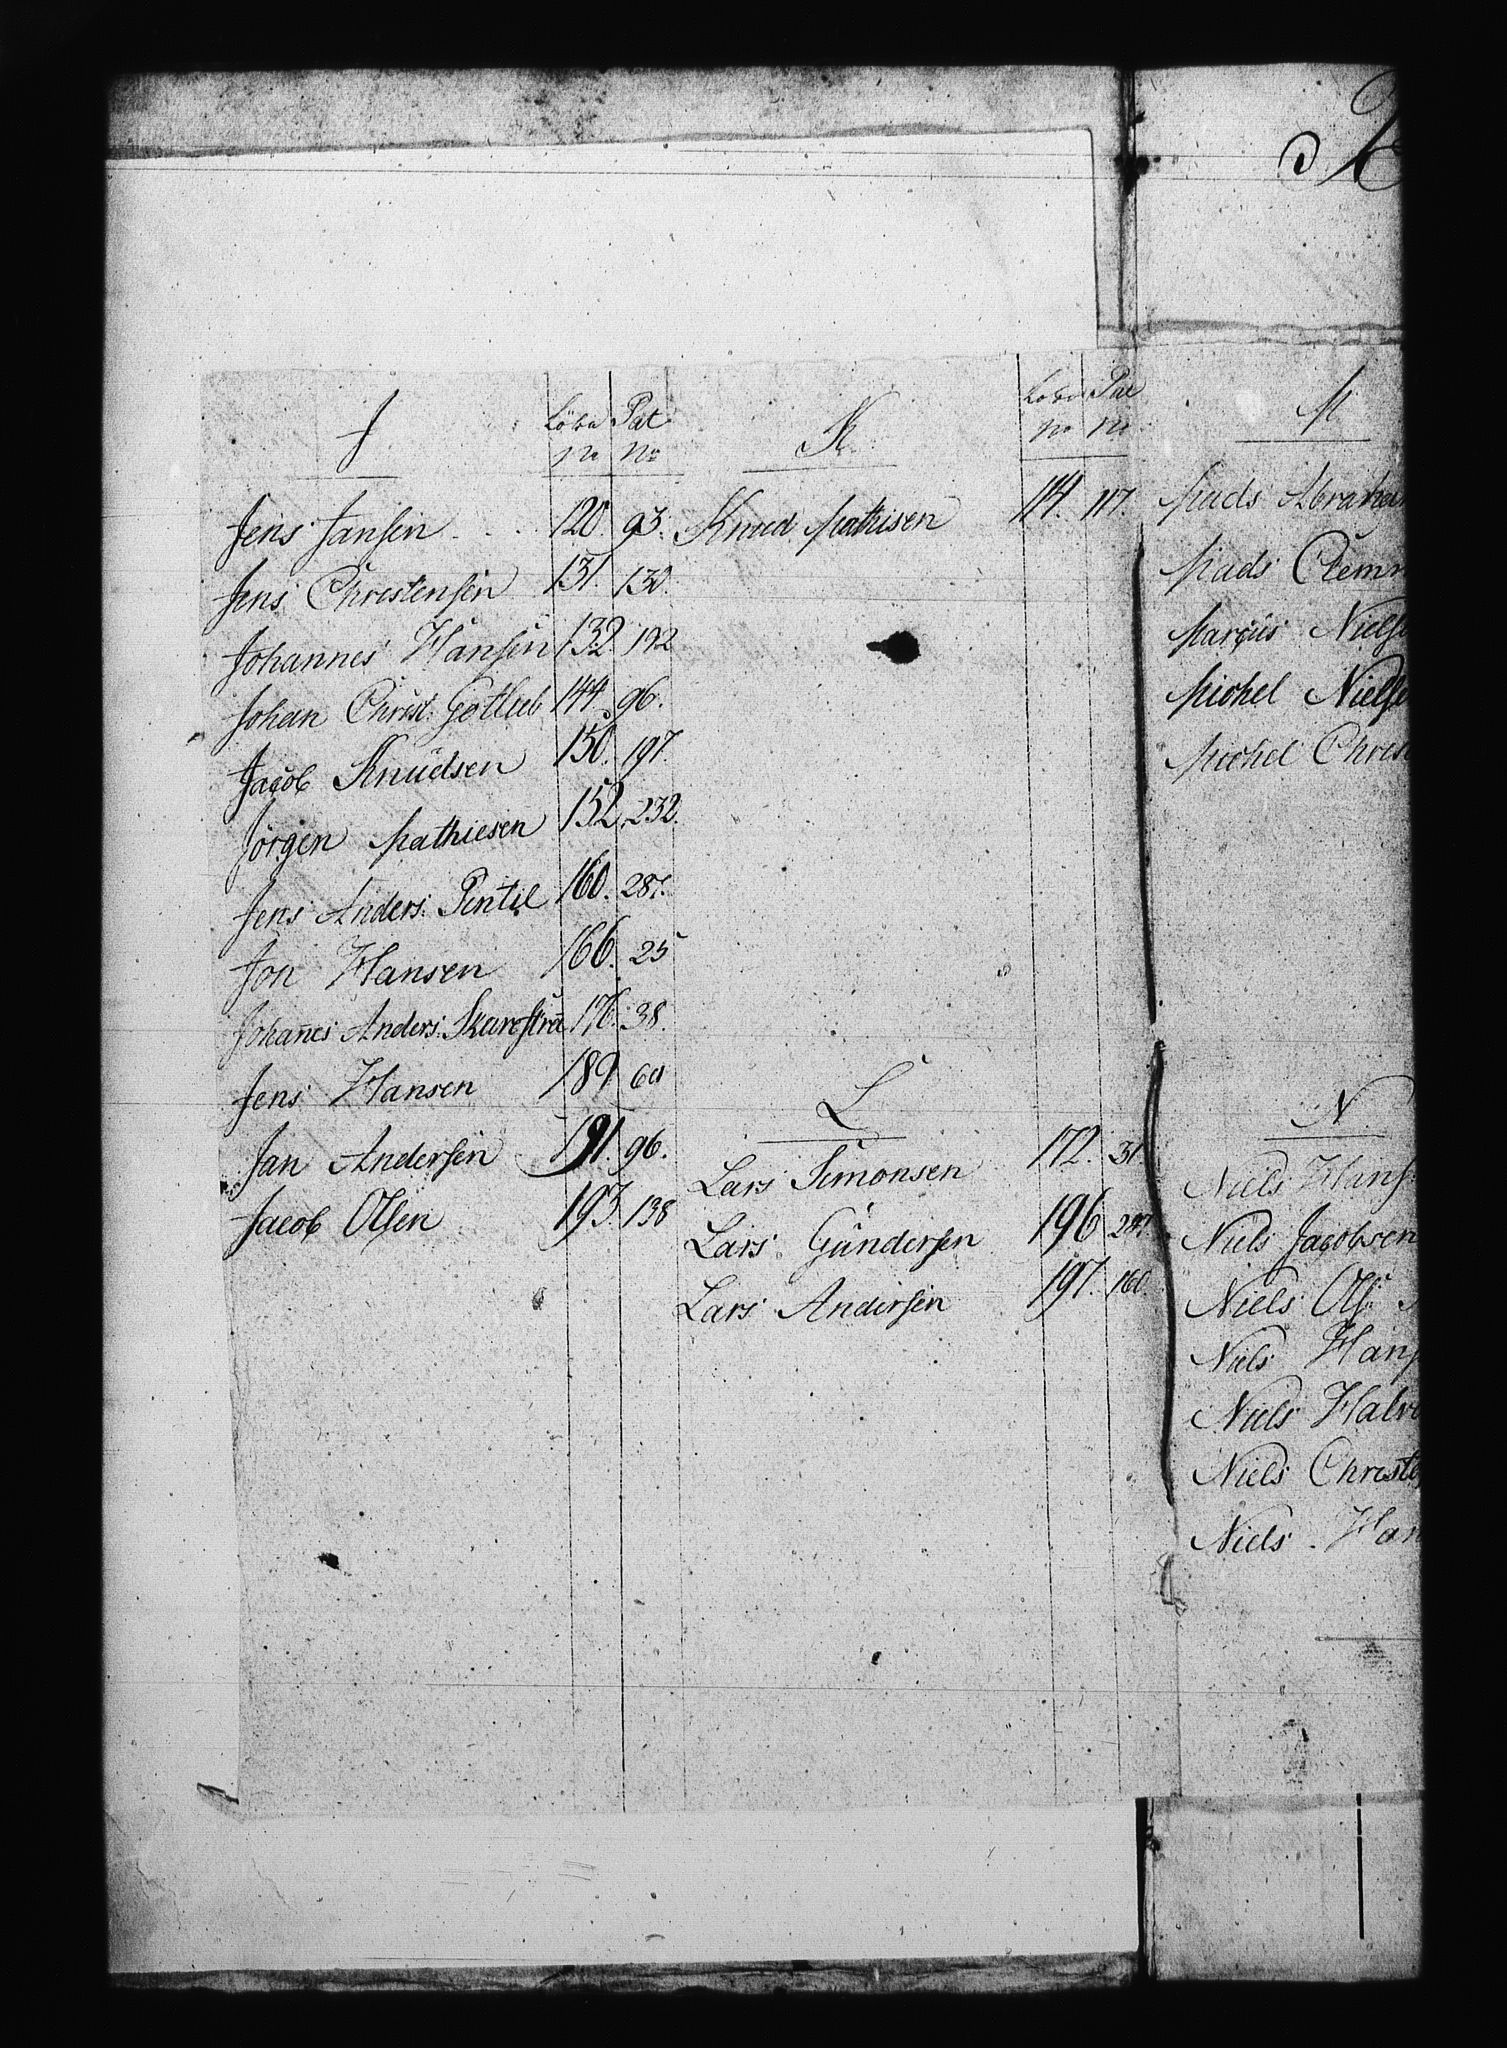 J Löbe No Pat No
Jens Jansen 120. 93.
Jens Christensen 131. 130.
Johannes Hansen 132. 192
Johan Christ. Gotlieb 144. 96.
Jacob Knudsen 150. 197.
Jörgen Mathiesen 152. 232.
Jens Anders. Pintil 160. 287.
Jon Hansen 166. 25
Johanes Anders. 176. 38.
Jens Hansen 189 60
Jan Andersen 191. 96.
Jacob Olsen 193. 138
K Löbe No Pat No
Knud Mathisen 114. 117.
L
Lars Simonsen 172. 31.
Lars Gundersen 196
Lars Andersen 197. 160.
M
Mads Abraham
Mads Clem
Marcus Nielse
Michel Nielse
Michel Christ
N
Niels Hans
Niels Jacobsen
Niels Ols
Niels Hans
Niels Halv
Niels Christe
Niels Han